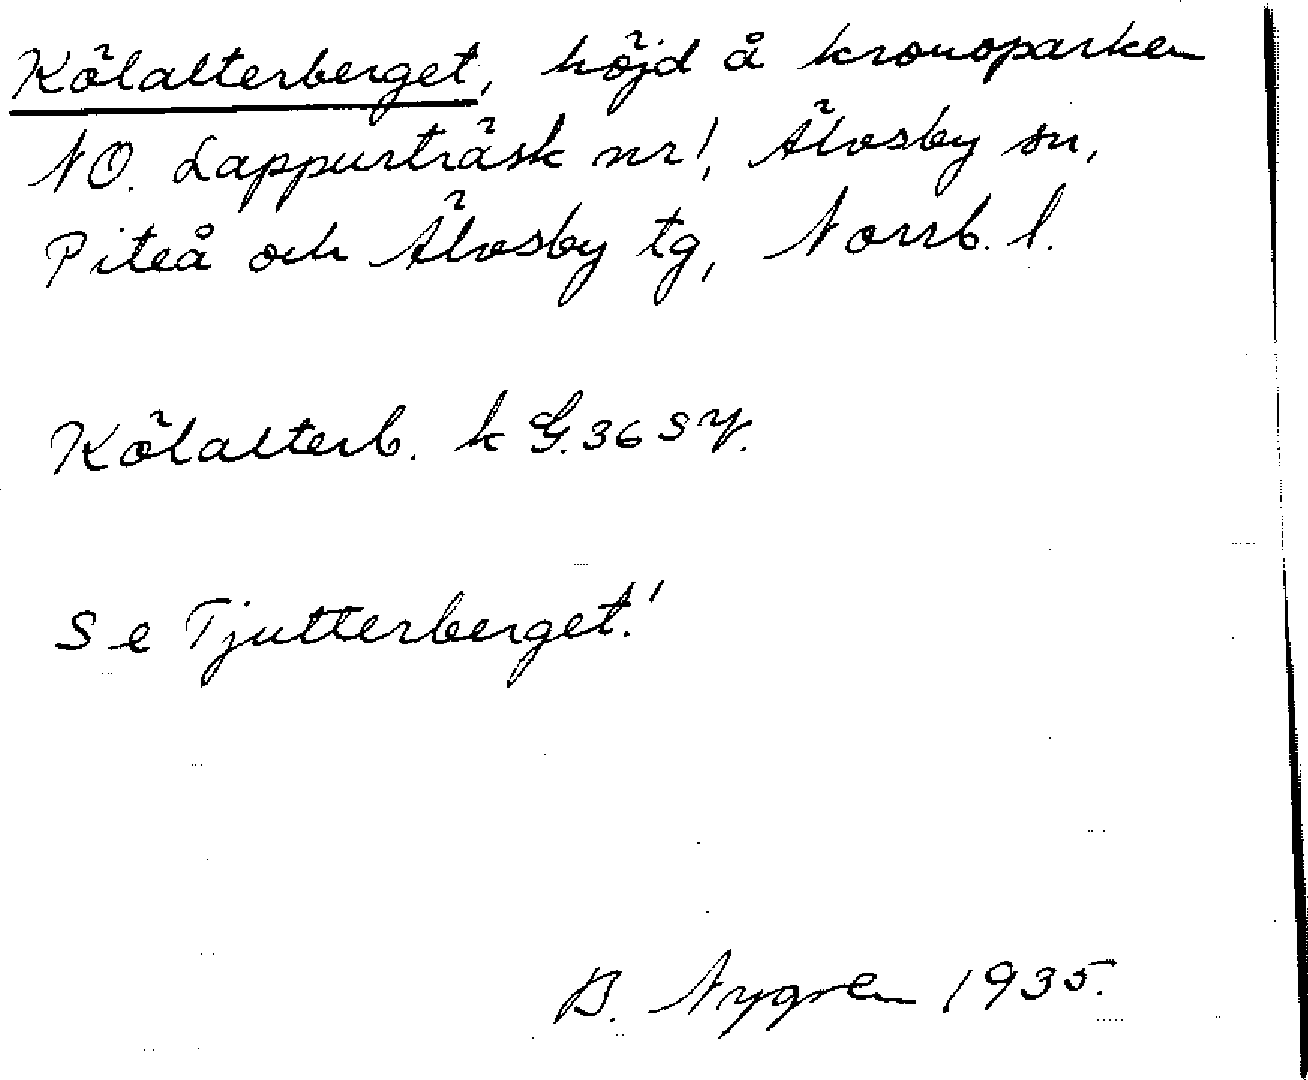 Kölalterberget, höjd å kronoparken
NO. Lappurträsk nr 1, Älvsby sn,
Piteå och Älvsby tg, Norrb. l.
Kölalterb. k G. 36 SV.
Se Tjutterberget!
B. Nygren 1935.